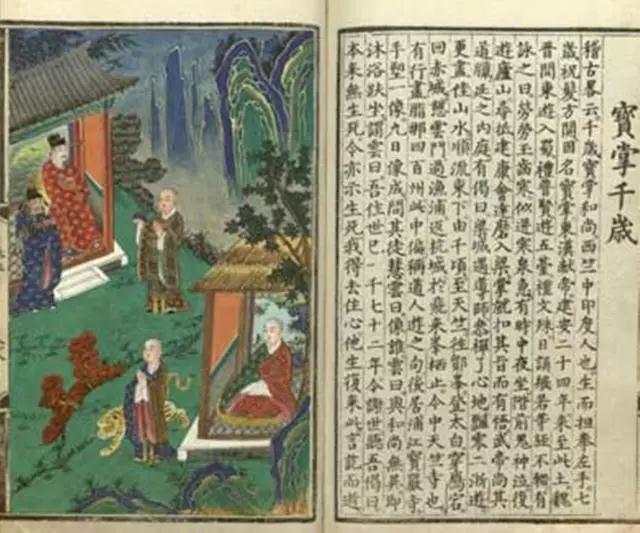 寶掌千歲
稽古畧云千歲寶掌和尚西竺中印度人也生而担拳左手七
歲祝髮方開因名寶掌東漢獻帝建安二十四年來至此土魏
晉間東遊入蜀禮普賢遊五臺禮文殊日誦般若等經不輟有
詠之曰勞勞玉齒寒似迸寒泉急有時中夜坐階前鬼神泣後
遊廬山尋抵建康會達磨入梁掌就扣其旨而有悟武帝尚其
道臘延之內庭有偈曰梁城遇導師參禪了心地飄零二浙遊
更盡佳山水順流東下由千頃至天竺往鄮峯登太白穿鴈宕
回赤城憩雲門過漁浦返杭城於飛來峯栖止今中天竺寺也
有行盡脂那四百州此中偏稱道人遊之句後居浦江寶嚴寺
手塑一像九日像成問其徒慧雲曰像誰雲曰與和尚無異即
沐浴趺坐謂雲曰吾住世已一千七十二年今謝世聽吾偈曰
本來無生死今亦示生死我得去住心他生復來此言訖而逝